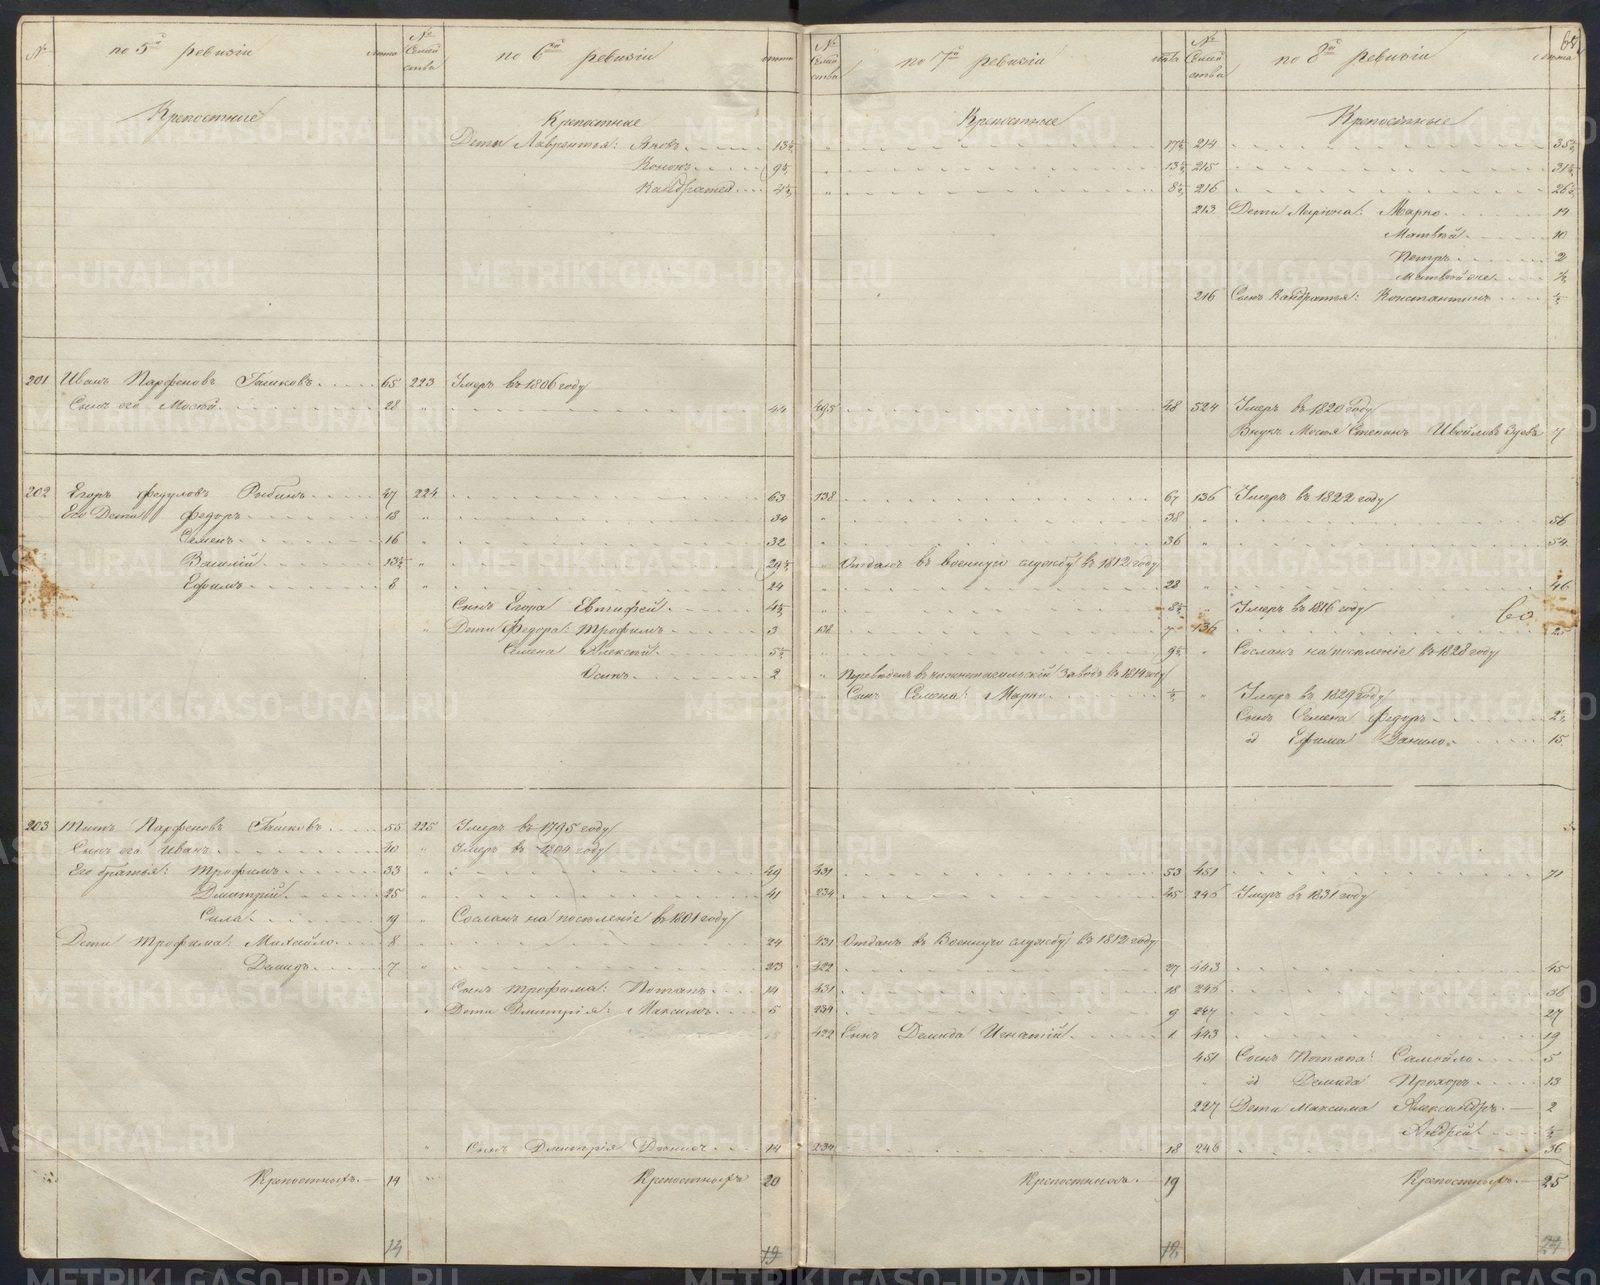 № по 5й ревизіи лета № Семей ства по 6й ревизіи лета № Семей ства по 7й ревизіи лета № Семей ства по 8й ревизіи лета
Крепостные Крепостные Крепостные Крепостные
Дети Лаврентья: Яковъ 13½ 17½ 214 35½
Кононъ 9½ 13½ 215 31½
Кандратей 4½ 8½ 216 26½
213 Дети Лариона: Марко 19
Матвей 10
Петръ 2
Матвей же ½
216 Сынъ Кандратья: Константинъ ½
201 Иванъ Парфеновъ Гашковъ 65 223 Умеръ въ 1806 году
Сынъ его Мосей 28 " 44 495 48 524 Умеръ въ 1820 году
Внукъ Мосея Степанъ 7
202 Егоръ Федуловъ Рыбинъ 47 224 63 138 67 136 Умеръ въ 1822 году
Его Дети Федоръ 18 " 34 " 38 " 56
Семенъ 16 " 32 " 36 " 54
Василий 13½ " 29½ " Отданъ въ военную службу въ 1812 году
Ефимъ 8 " 24 " 28 " 46
Сынъ Егора Евтифей 4½ " 8½ " Умеръ въ 1816 году
" Дети Федора: Трофимъ 3 138 7 136 25
Семена Алексей 5½ " 9½ " Сосланъ на поселеніе въ 1828 году
Осипъ 2 " Переведенъ въ Заводъ въ 1814 году
Сынъ Семена: Марко ½ " Умеръ въ 1829 году
Сынъ Семена Федоръ 2½
id Ефима Данило 15
203 Титъ Парфеновъ Гашковъ 55 225 Умеръ въ 1795 году
Сынъ его Иванъ 40 " Умеръ въ 1804 году
Его братья: Трофимъ 33 " 49 431 53 451 71
Дмитрій 25 " 41 234 45 246 Умеръ въ 1831 году
Сила 19 " Сосланъ на поселеніе въ 1801 году
Дети Трофима: Михайло 8 " 24 431 Отданъ въ Военную службу въ 1812 году
Демидъ 7 " 23 422 27 443 45
Сынъ Трофима: Потапъ 14 431 18 246 36
" Дети Дмитрія: Максимъ 5 234 9 247 27
422 Сынъ Демида Игнатій 1 443 19
451 Сынъ Потапа: Самойло 5
" id Демида Прохоръ 13
227 Дети Максима Александръ 2
Андрей ½
" Сынъ Дмитрія Денисъ 14 234 18 246 36
Крепостныхъ 14 " Крепостныхъ 20 Крепостныхъ 19 Крепостныхъ 25
14 19 18 24
METRIKI.GASO-URAL.RU